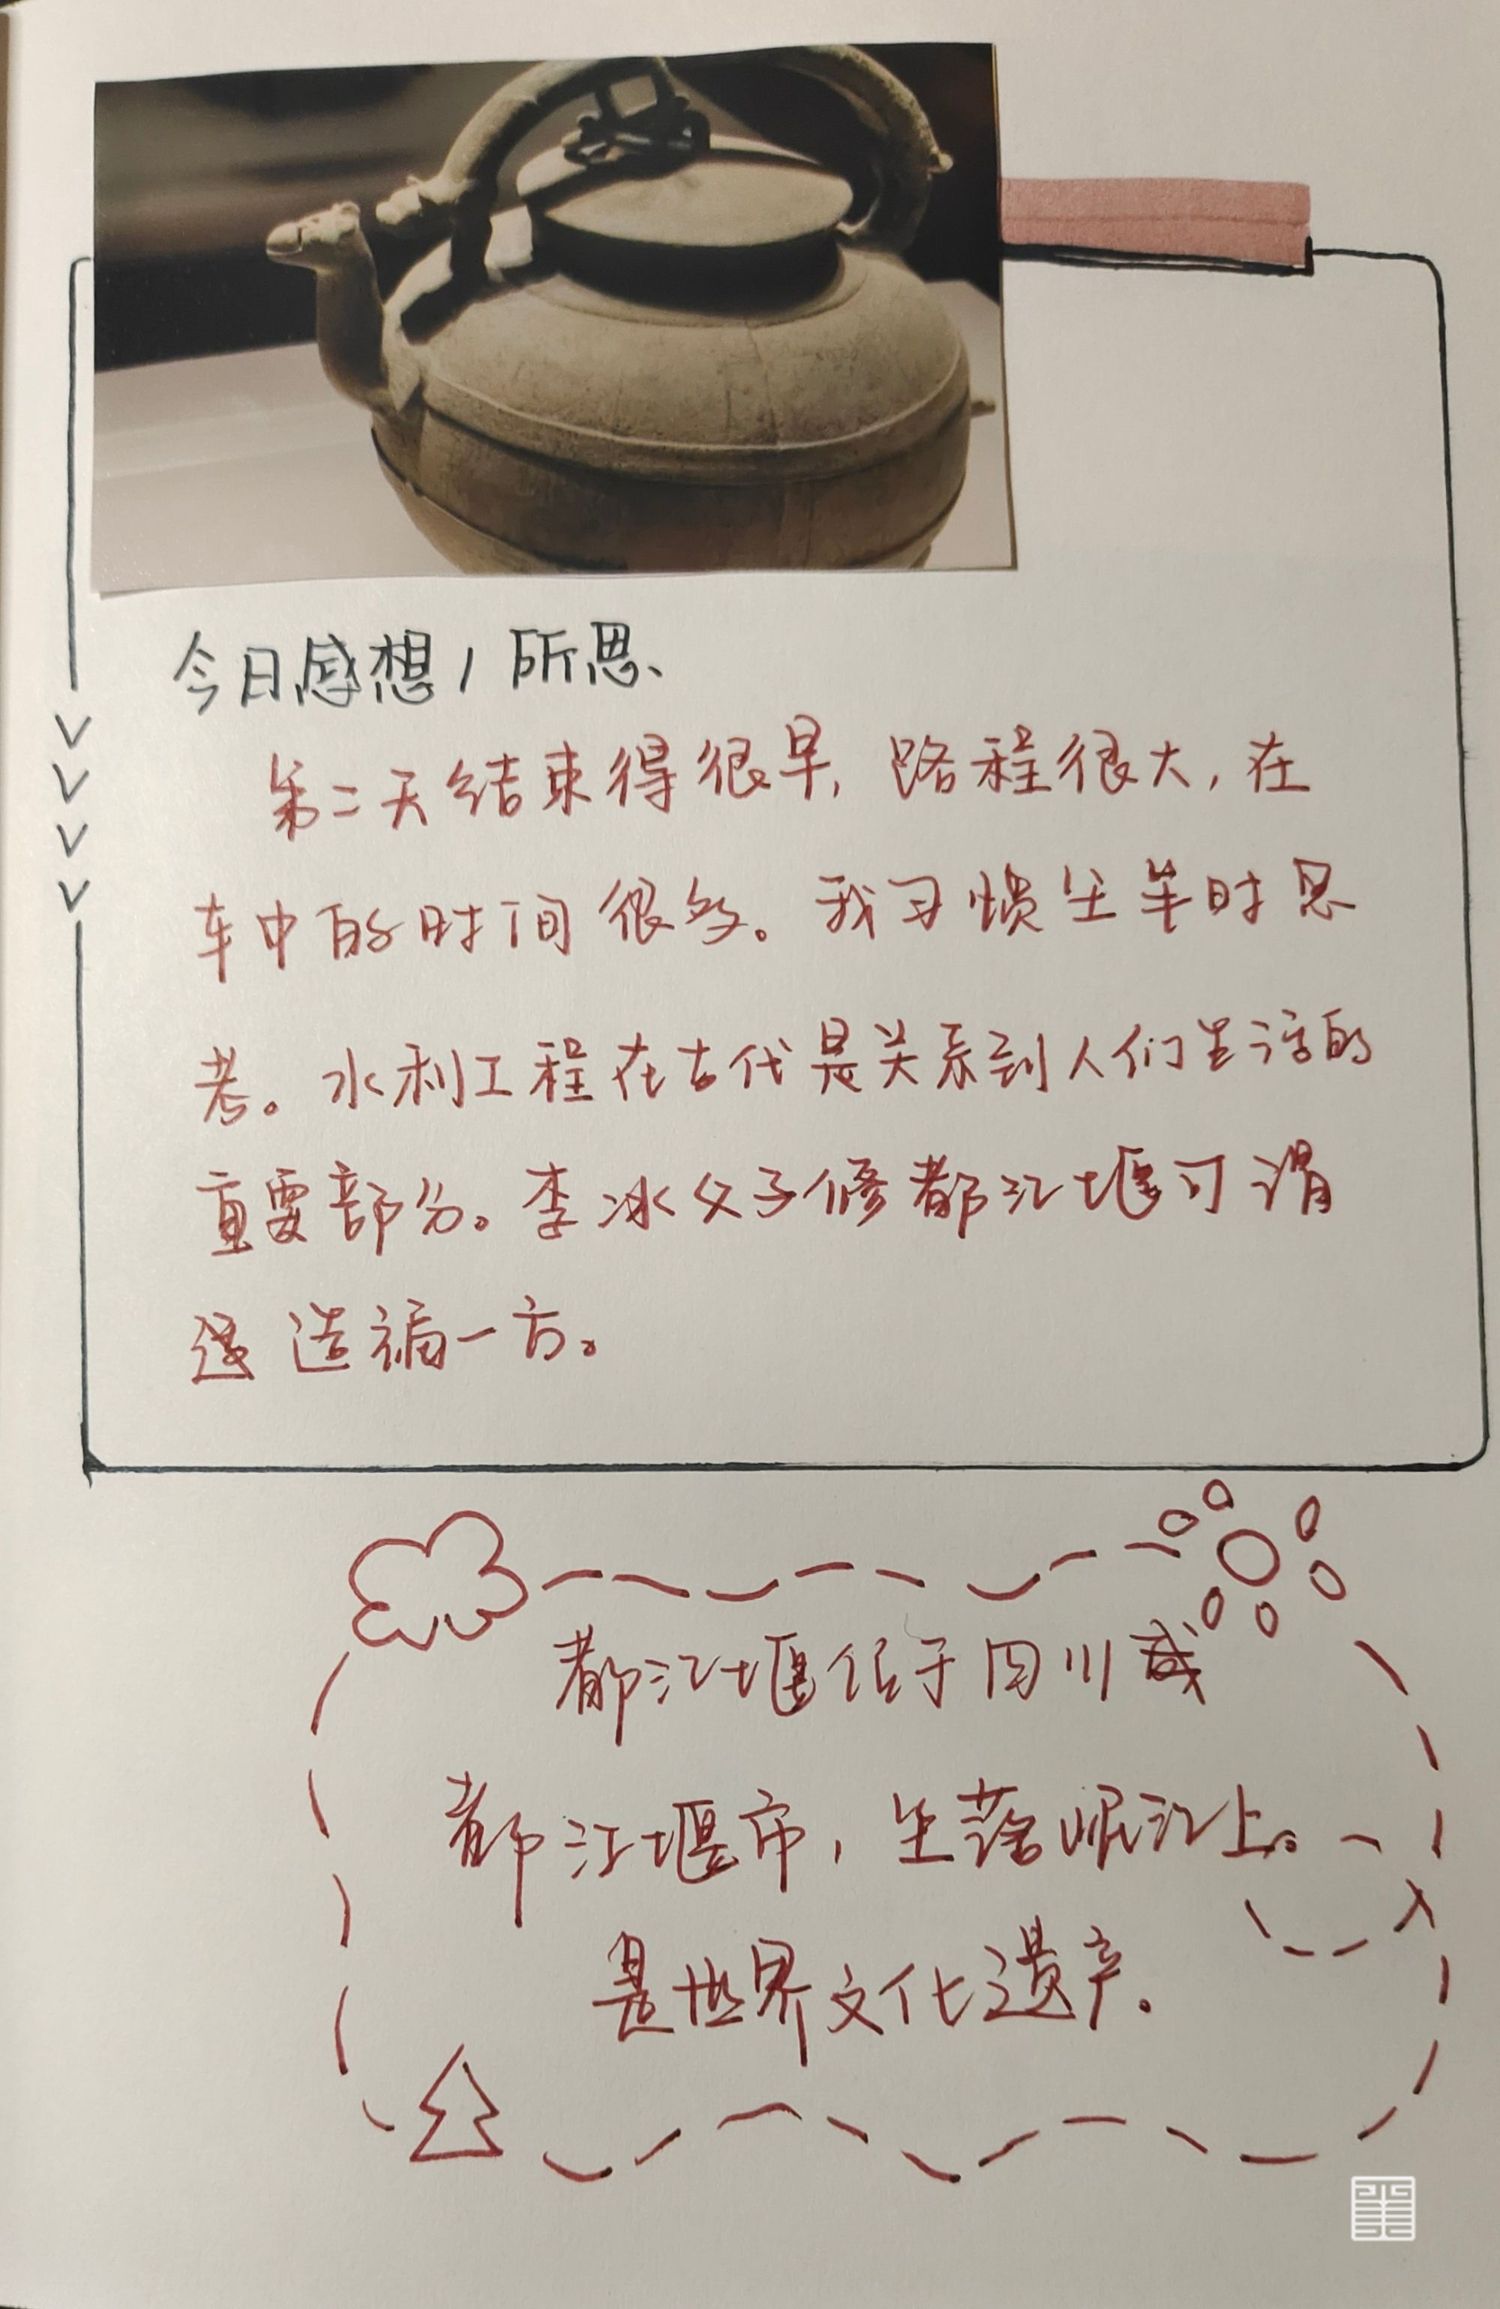 今日感想/所思、
第二天结束得很早,路程很大,在
车中的时间很多。我习惯坐车时思
考。水利工程在古代是关系到人们生活的
重要部分。李冰父子修都江堰可谓
造福一方。
都江堰位于四川成
都江堰市,坐落岷江上。
是世界文化遗产.